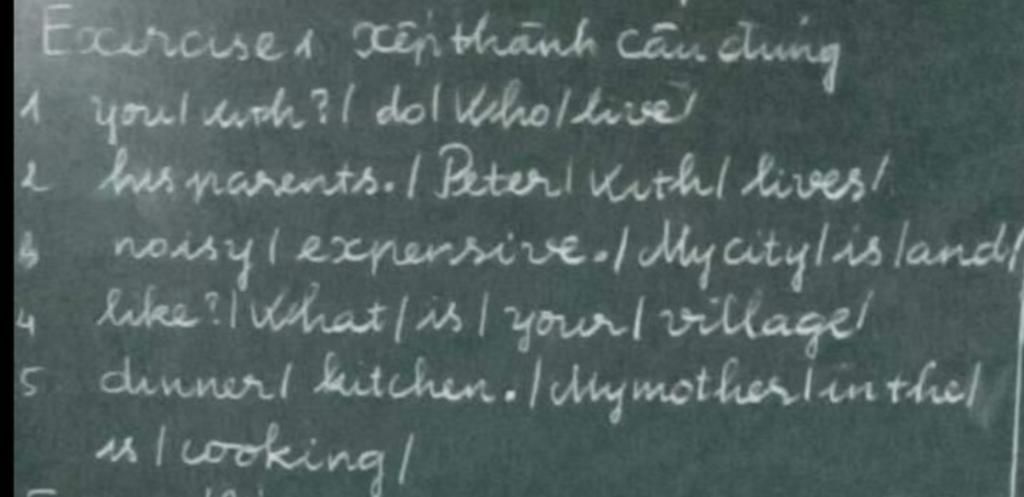 Exercise 1 xếp thành câu đúng
1 you / with? / do / Who / live /
2 his parents. / Peter / with / lives /
3 noisy / expensive. / My city / is / and /
4 like? / What / is / your / village /
5 dinner / kitchen. / My mother / in the /
is / cooking /